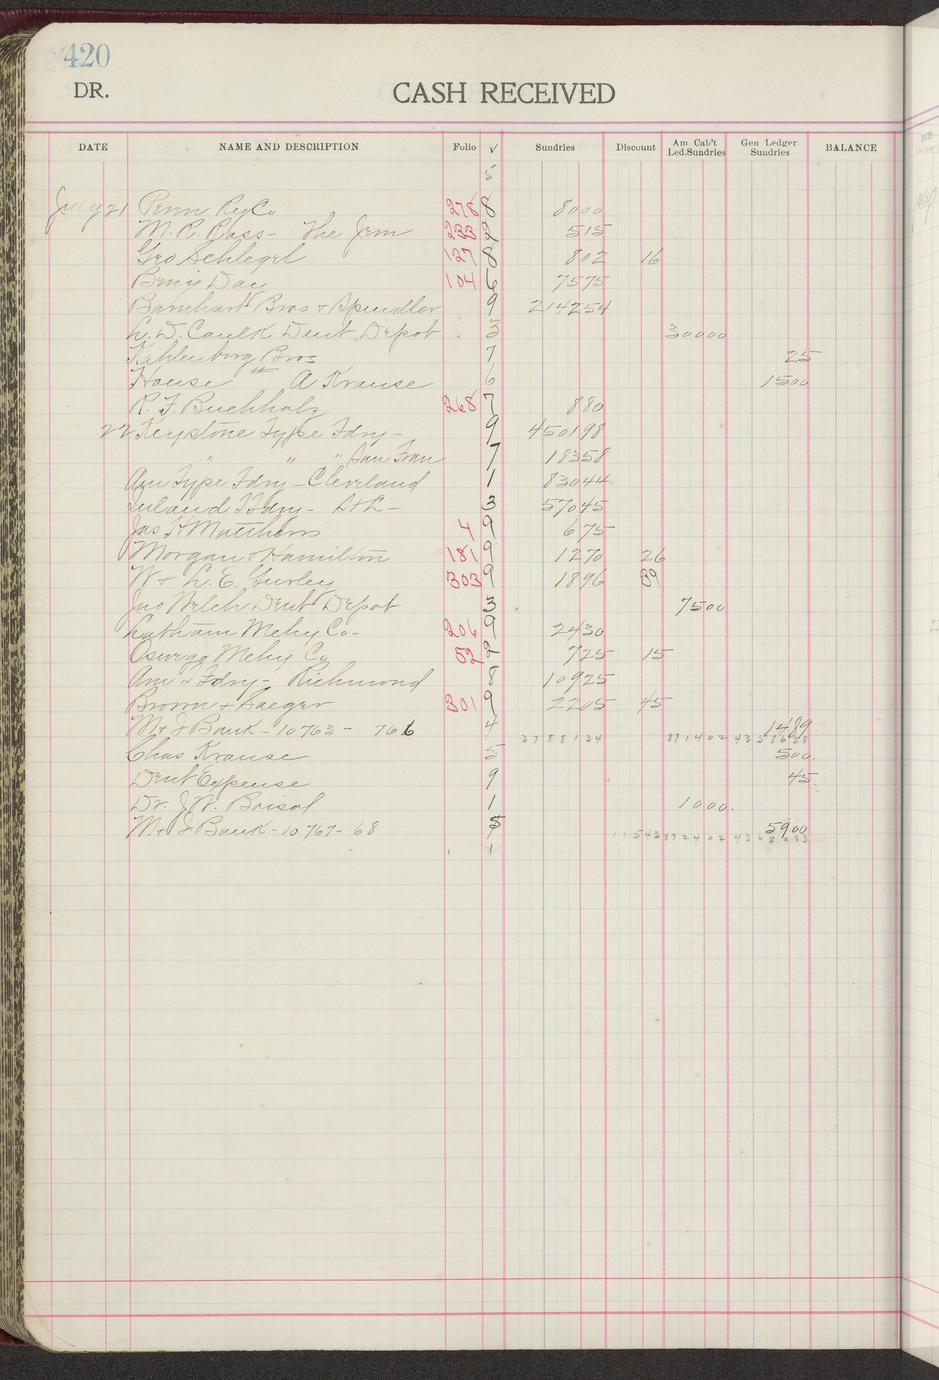 420
DR.
CASH RECEIVED
DATE NAME AND DESCRIPTION Folio √ Sundries Discount Am Cab't Led.Sundries Gen Ledger Sundries BALANCE
5
July 21 Penn Ry Co 278 8 8000
M. R. Bass - The Jem 233 2 515
Geo Schlegel 127 8 802 16
Benj Day 104 6 7575
Barnhart Bros & Spindler 9 214254
L. D. Caulk Dent Depot 3 30000
Kahlenberg Bros 7 25
House " A Krause 6 1500
R. F. Buchholz 268 7 880
22 Keystone Type Fdry - 9 450198
" " " San Fran 7 18358
Am Type Fdry - Cleveland 1 83044
Inland T Fdry - StL - 3 57045
Jas H Matthews 4 9 675
Morgan & Hamilton 181 9 1270 26
W & L. E. Gurley 303 9 1896 39
Jno Welch Dent Depot 3 7500
Latham Mchy Co - 206 9 2430
Oswego Mchy Co 52 2 725 15
Am T Fdry - Richmond 8 10925
Brown & Saeger 301 9 2205 45
M & J Bank - 10763 - 766 4 1489
3788134 871402
Chas Krause 5 500
Dent Expense 9 45
Dr. J. W. 1 1000
M & J Bank - 10767 - 68 5 5900
11543 872402
1